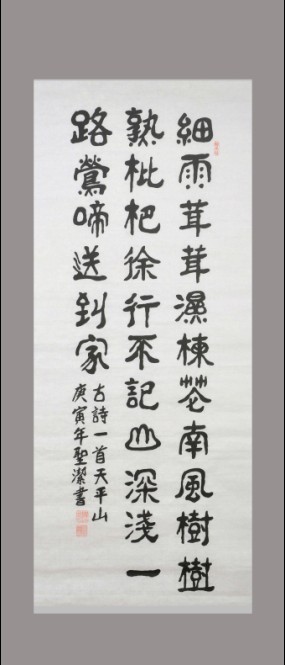 細雨茸茸濕楝花南風樹樹
熟枇杷徐行不記山深淺一
路鶯啼送到家
古詩一首天平山
庚寅年聖潔書